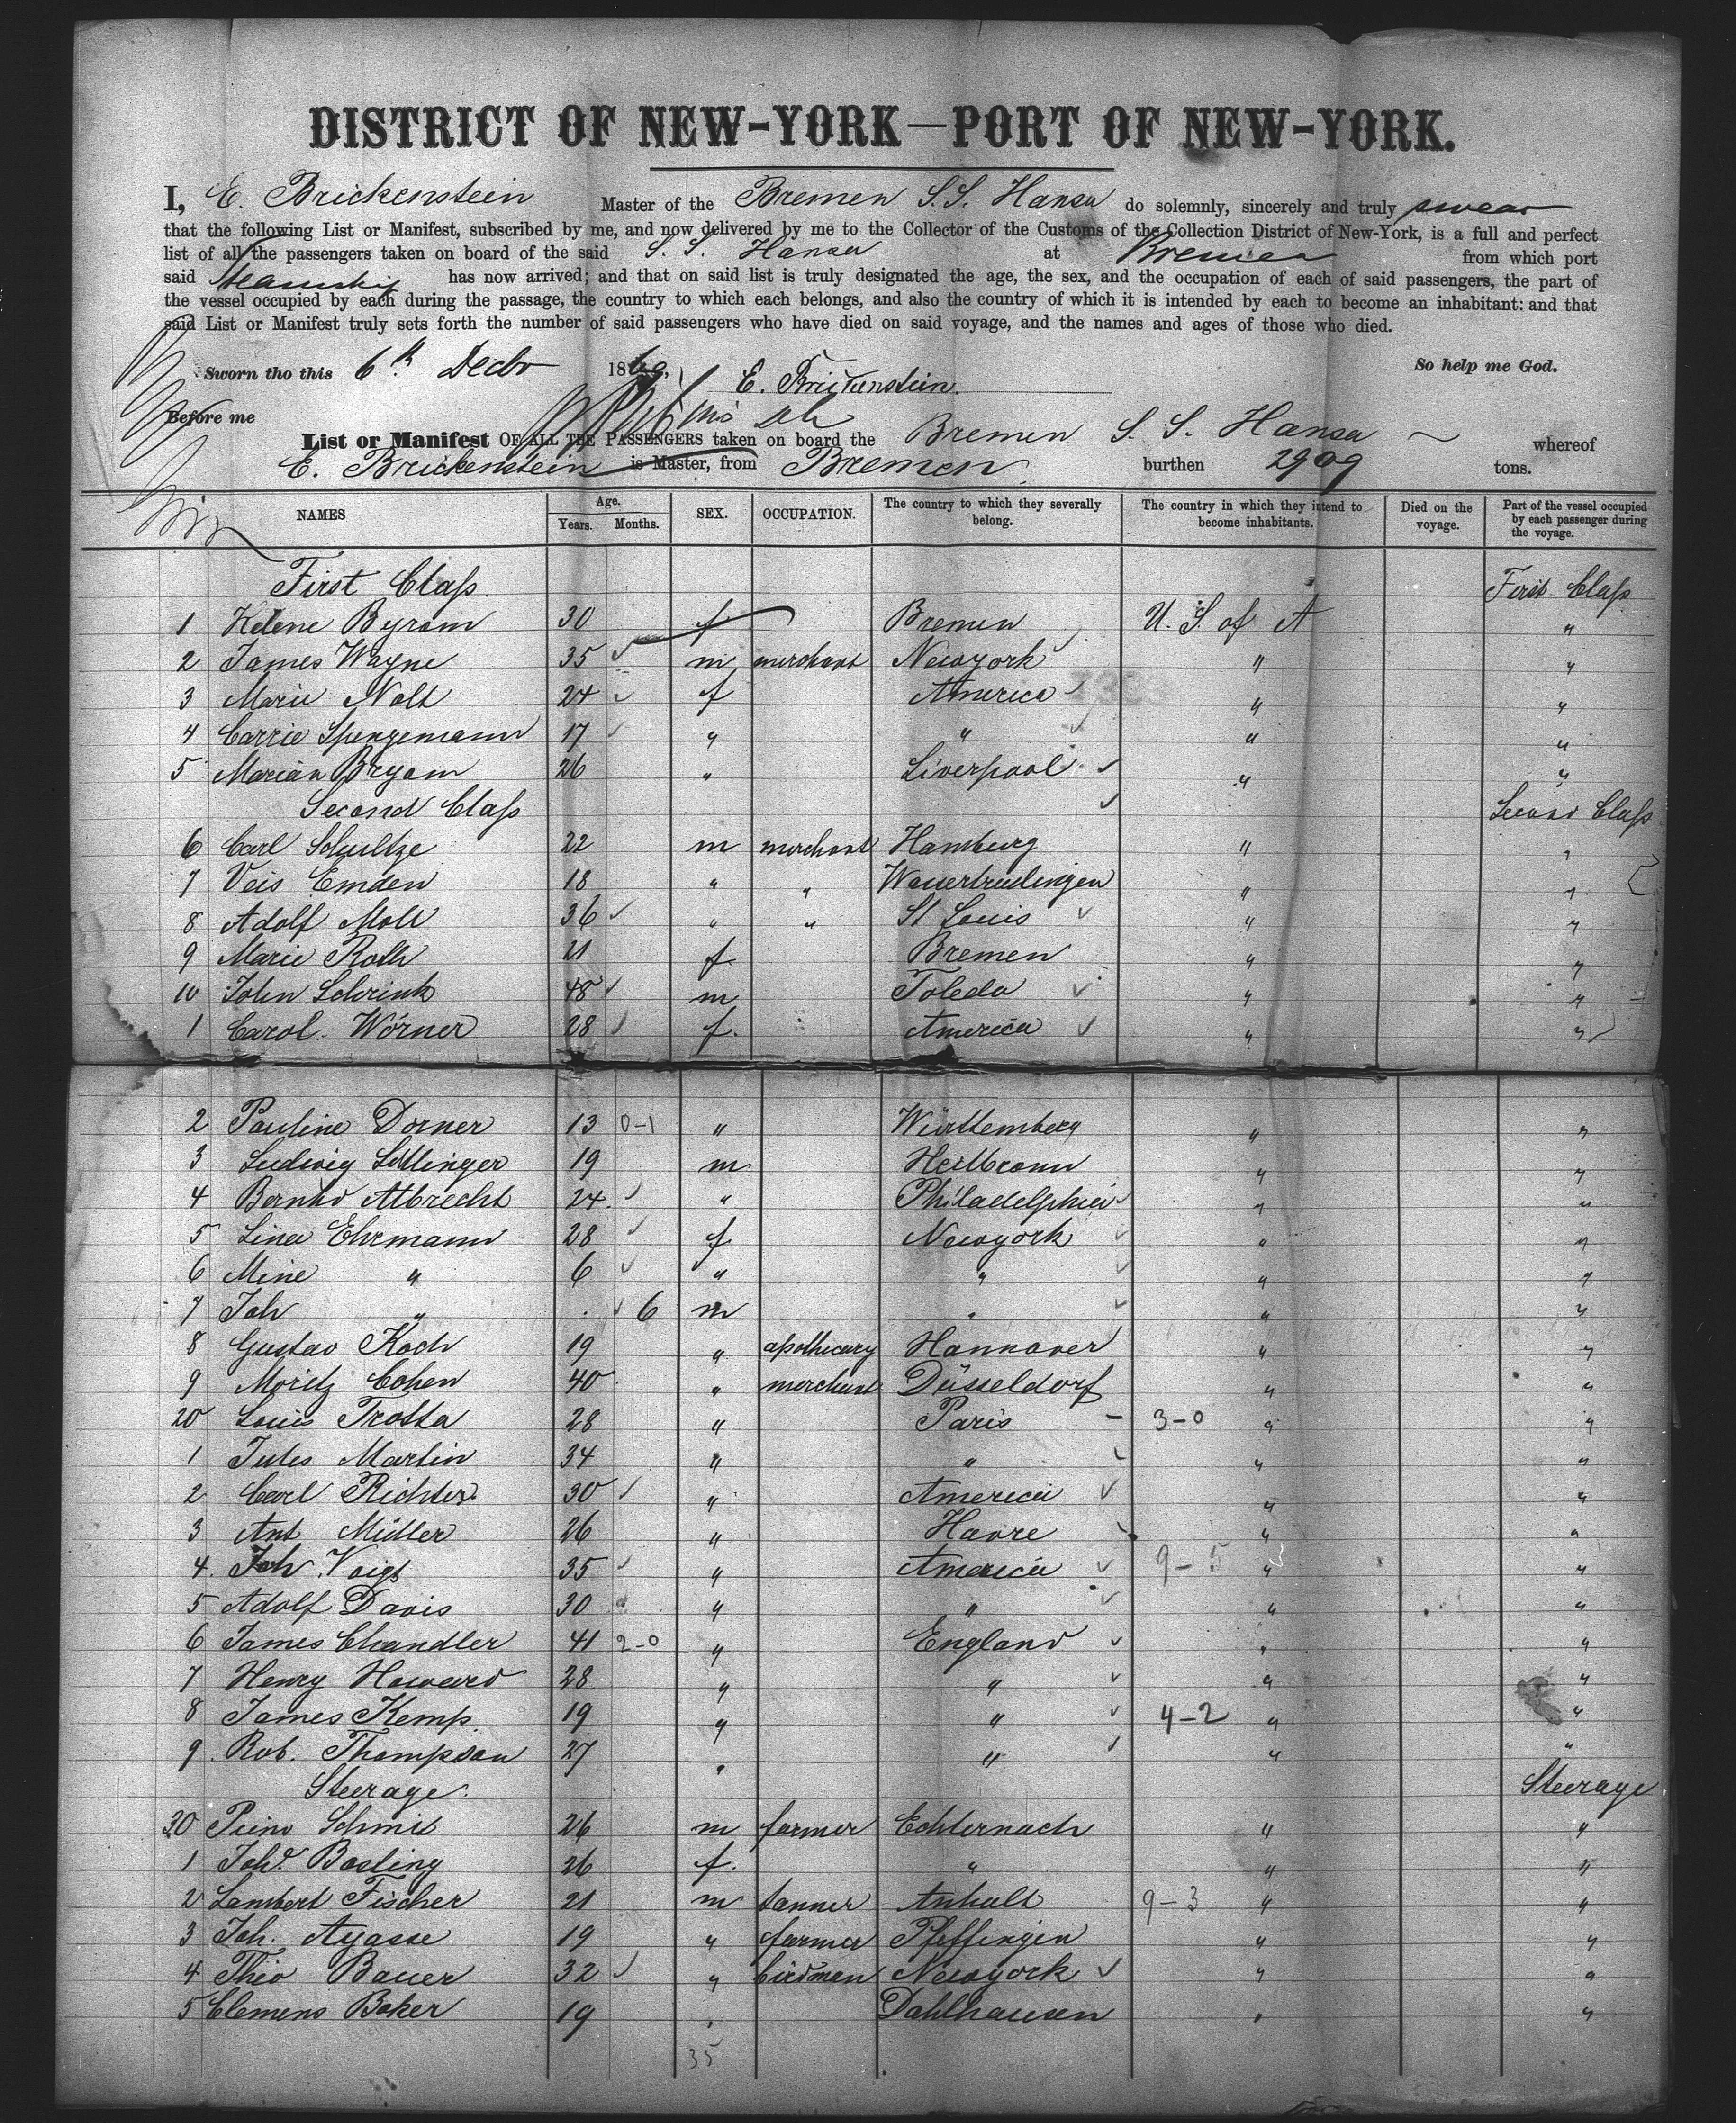 DISTRICT OF NEW-YORK—PORT OF NEW-YORK.
I, E. Brickenstein Master of the Bremen S.S. Hansa do solemnly, sincerely and truly swear
that the following List or Manifest, subscribed by me, and now delivered by me to the Collector of the Customs of the Collection District of New-York, is a full and perfect
list of all the passengers taken on board of the said S. S. Hansa at Bremen from which port
said Steamship has now arrived; and that on said list is truly designated the age, the sex, and the occupation of each of said passengers, the part of
the vessel occupied by each during the passage, the country to which each belongs, and also the country of which it is intended by each to become an inhabitant: and that
said List or Manifest truly sets forth the number of said passengers who have died on said voyage, and the names and ages of those who died.
Sworn tho this 6th Decbr 1869, E. Brickenstein. So help me God.
Before me
List or Manifest OF ALL THE PASSENGERS taken on board the Bremen S. S. Hansa whereof
E. Brickenstein is Master, from Bremen, burthen 2909 tons.
NAMES Age. Years. Months. SEX. OCCUPATION. The country to which they severally belong. The country in which they intend to become inhabitants. Died on the voyage. Part of the vessel occupied by each passenger during the voyage.
First Class. First Class
1 Helene Byrom 30 f Bremen U. S. of A "
2 James Wayne 35 m merchant Newyork " "
3 Marie Nolt 24 f America " "
4 Carrie Spengemann 17 " " " "
5 Marian Brgom 26 " Liverpool " "
Second Class Second Class
6 Carl Schultze 22 m merchant Hamburg " "
7 Veis Emden 18 " " " "
8 Adolf Moll 36 " " St Louis " "
9 Marie Roth 21 f. Bremen " "
10 John Schrink 48 m Toledo " "
1 Carol. Wörner 28 f. America " "
2 Pauline Dorner 13 0-1 " Württemberg " "
3 Ludwig 19 m Heilbronn " "
4 Bernhd Albrecht 24. " Philadelphia " "
5 Lina Ehrmann 28 f Newyork " "
6 Mine " 6 " " " "
7 Joh " 6 m " " "
8 Gustav Koch 19 " apothecary Hannover " "
9 Moritz Cohen 40 " merchant Düsseldorf " "
20 Louis Trotta 28 " Paris - 3-0 " "
1 Jules Martin 34 " " " "
2 Carl Richter 30 " America " "
3 Ant Müller 26 " Havre " "
4. Joh. Voigt 35 " America 9-5 " "
5 Adolf Davis 30 " " " "
6 James Chandler 41 2-0 " England " "
7 Henry Howard 28 " " " "
8 James Kemp. 19 " " 4-2 " "
9. Rob. Thompson 27 " " " "
Steerage. Steerage
30 Schmit 26 m farmer Echternach " "
1 Johd. Bosling 26 f. " " "
2 Lambert Fischer 21 m tanner Anhalt 9-3 " "
3 Joh. Ayasse 19 " farmer Pfeffingen " "
4 Theo Bauer 32 " birdman Newyork " "
5 Clemens Baker 19 " Dahlhausen " "
35